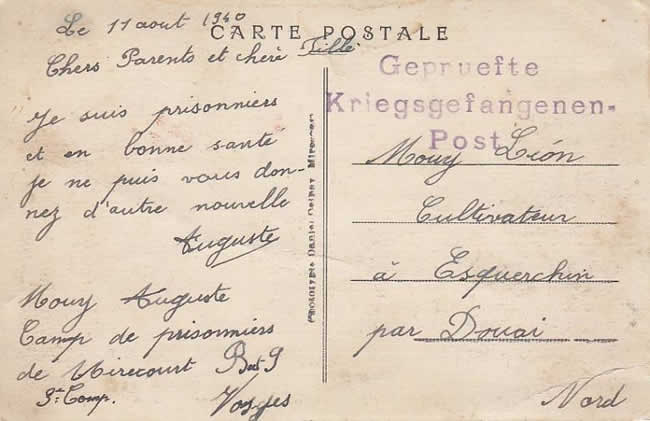 CARTE POSTALE
Le 11 aout 1940
Chers Parents et chère Fille
Je suis prisonniers
et en bonne santé
je ne puis vous don-
nez d'autre nouvelle
Auguste
Mouy Auguste
Camp de prisonniers
de Mirecourt Bat 9
3e Comp. Vosges
PHOTOTYPIE DANIEL MIRECOURT
Gepruefte
Kriegsgefangenen-
Post
Mouy Léon
Cultivateur
à Esquerchin
par Douai
Nord